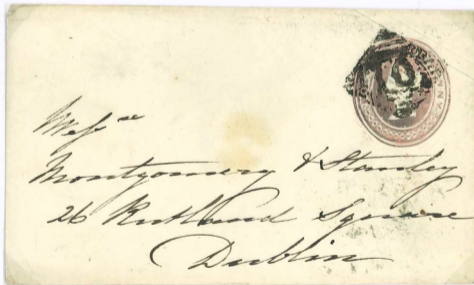 Messrs
Montgomery & Stanley
26 Rutland Square
Dublin